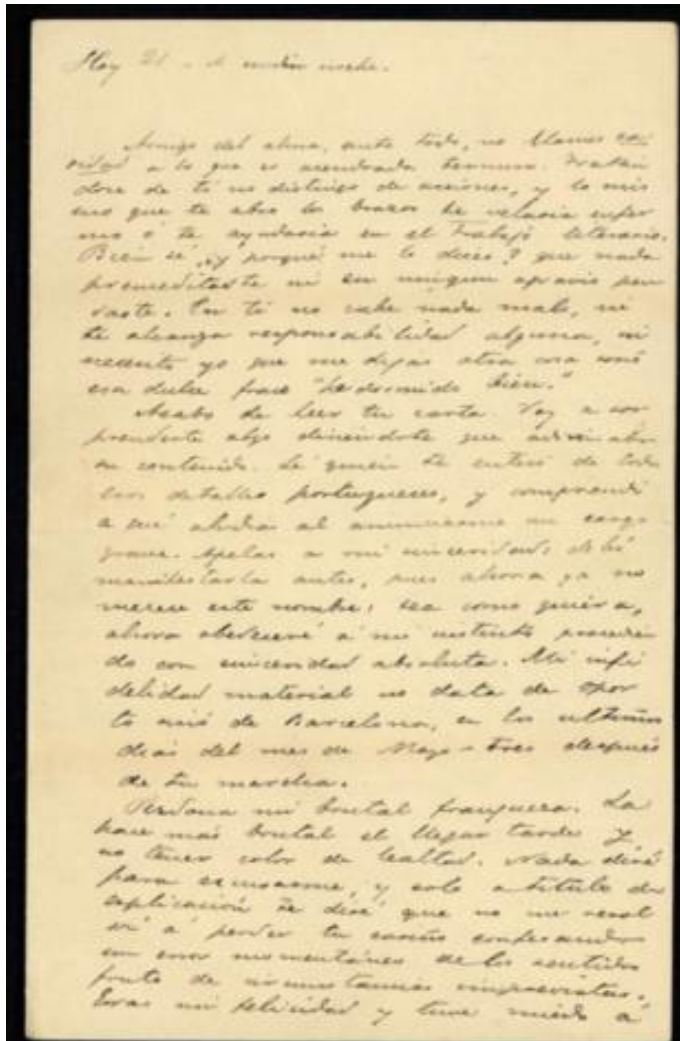 Hoy 21 - á media noche.
Amigo del alma, ante todo, no llames cari
ridad a lo que es acendrada ternura. Tratán
dose de ti no distingo de acciones, y lo mis
mo que te abro los brazos te velaria enfer
mo ó te ayudaria en el trabajo literario.
Bien sé, ¿y porqué me lo dices? que nada
premeditaste ni en ningun agravio pen
saste. En ti no cabe nada malo, ni
te alcanza responsabilidad alguna, ni
necesito yo que me digas otra cosa
esa dulce frase "he dormido bien."
Acabo de leer tu carta. Voy a sor
prenderte algo diciendote que adivinaba
su contenido. Sé quien te enteró de todos
esos detalles portugueses, y comprendí
a qué aludias al anunciarme un cargo
grave. Apelas a mi sinceridad: debí
manifestarla antes, pues ahora ya no
merece este nombre: sea como quiera,
ahora obedeceré a mi instinto procedien
do con sinceridad absoluta. Mi infi
delidad material no data de Opor
to sinó de Barcelona, en los ultimos
dias del mes de Mayo - tres despues
de tu marcha.
Perdona mi brutal franqueza. La
hace mas brutal el llegar tarde y
no tener color de lealtad. Nada diré
para excusarme, y solo a titulo de
explicación te diré que no me resol
ví a perder tu cariño confesando
un error momentáneo de los sentidos
fruto de circunstancias imprevistas.
Eras mi felicidad y tuve miedo á